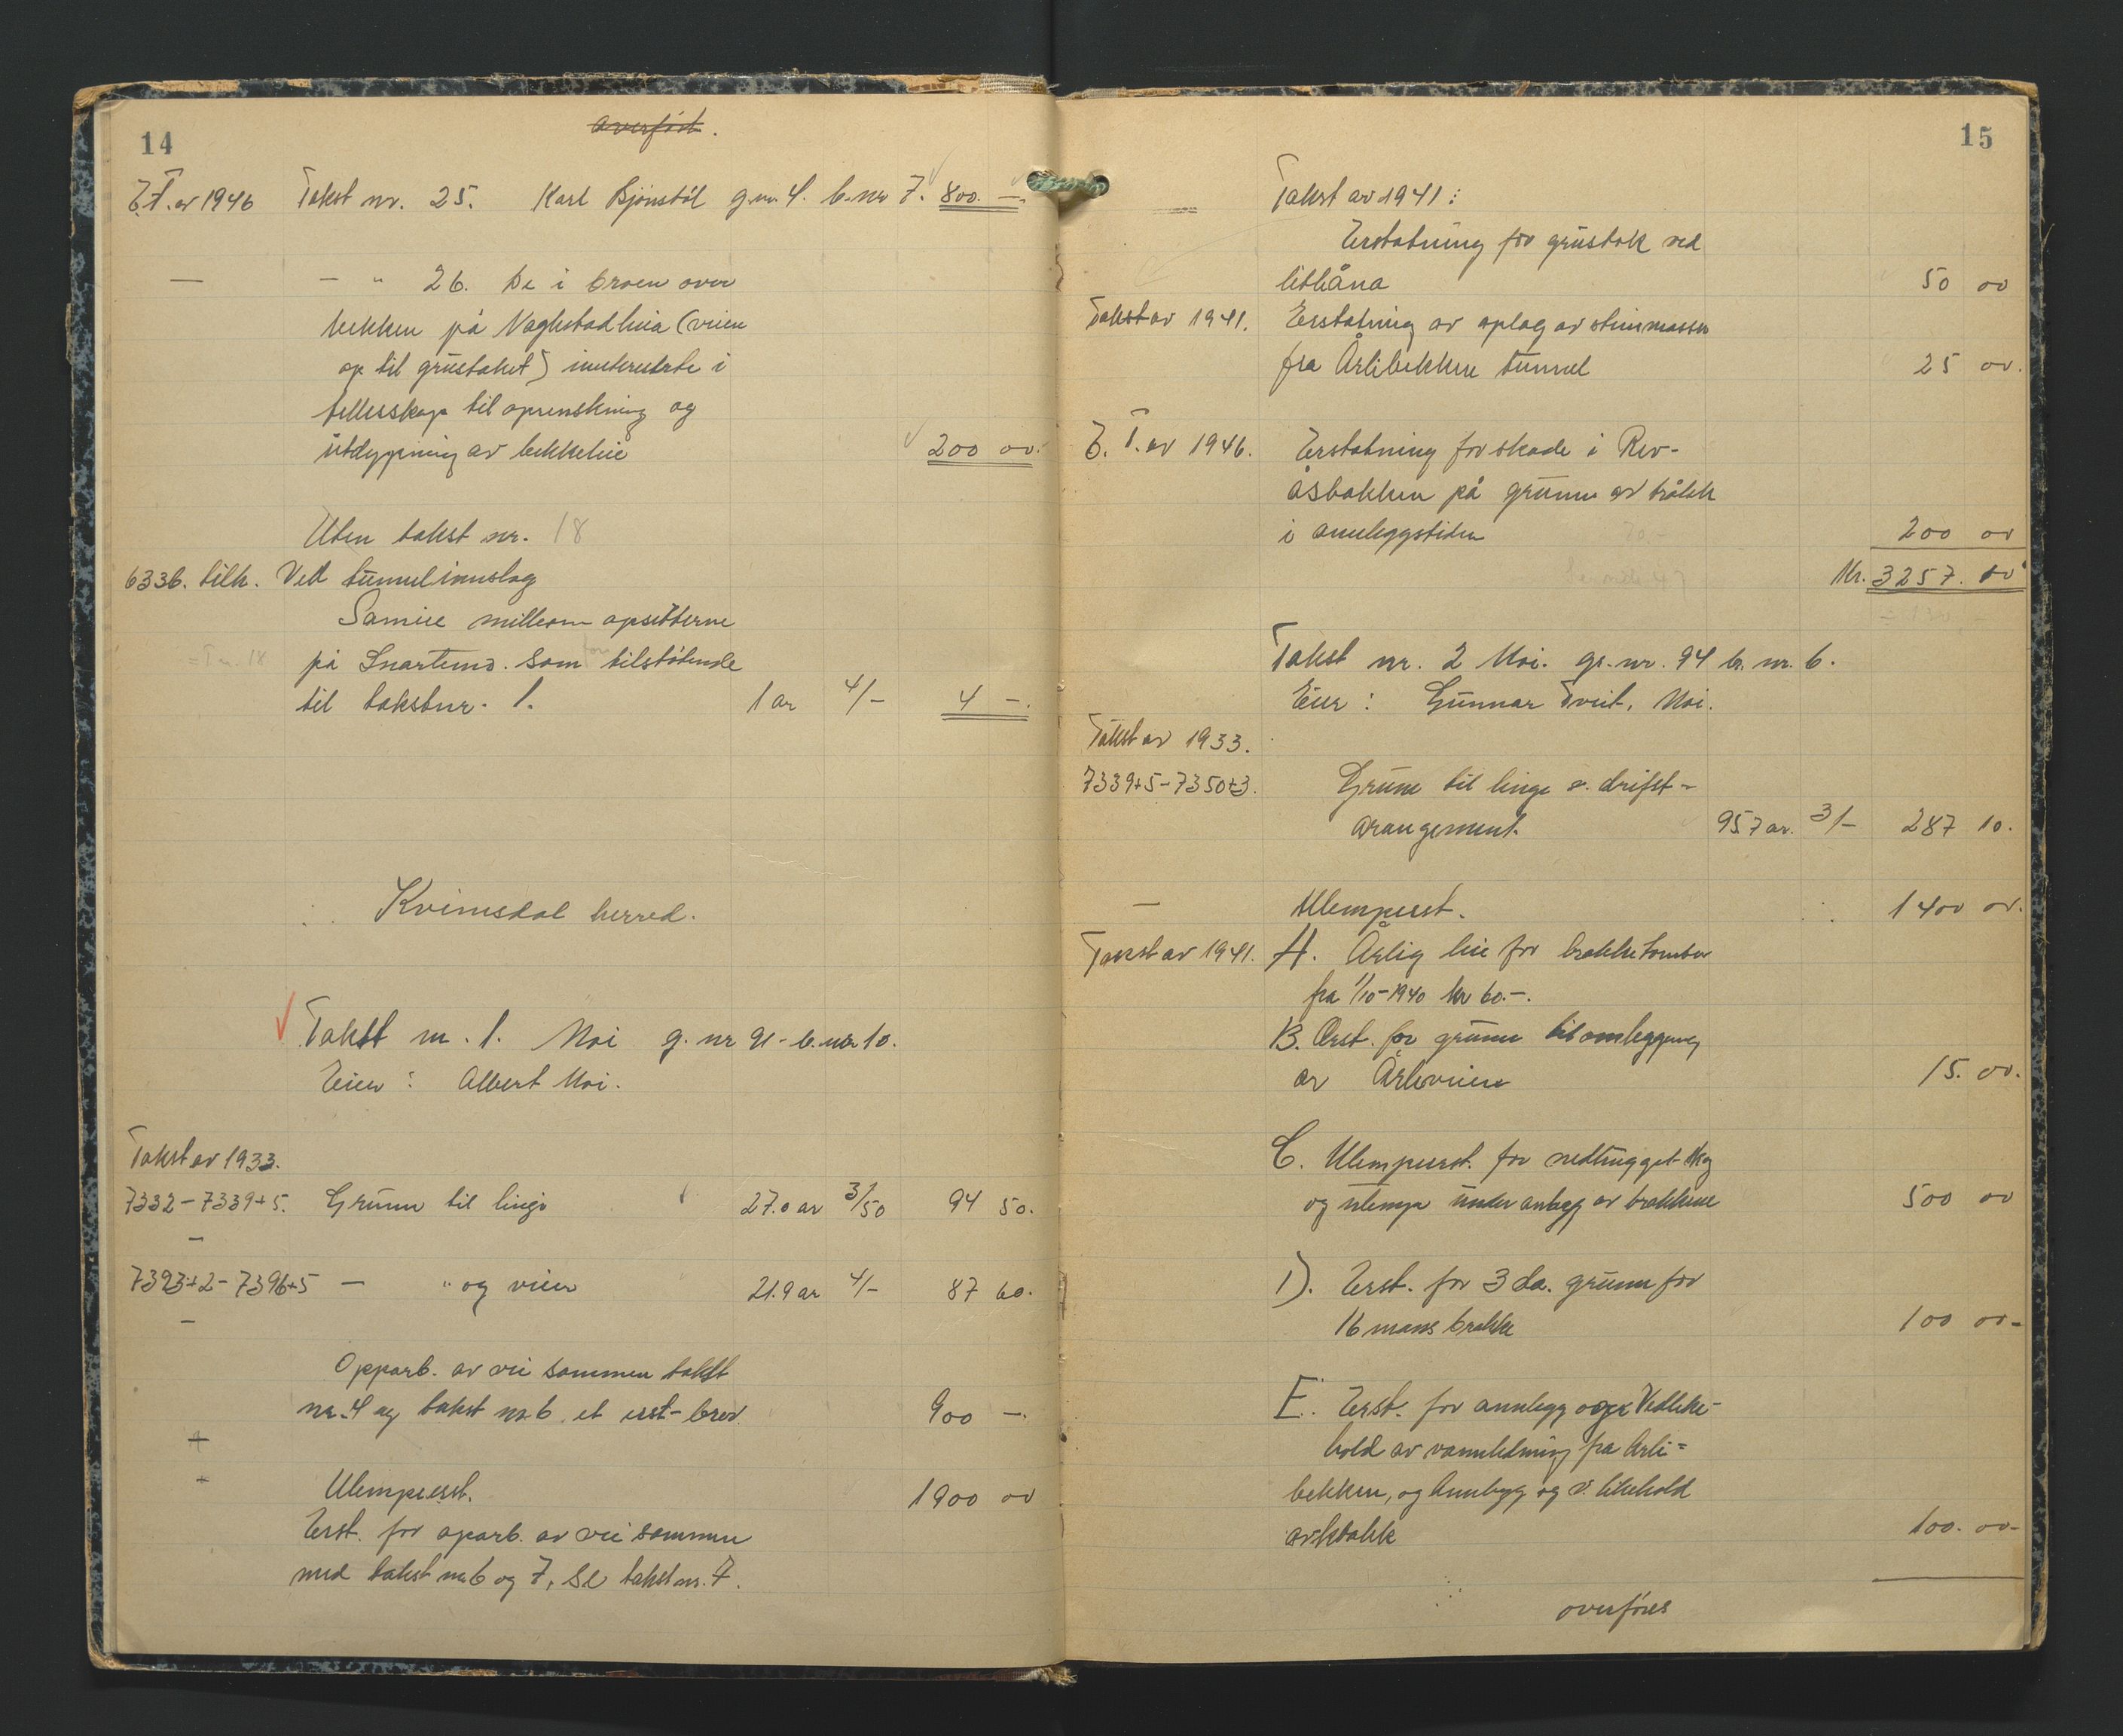 14
Overført.
E.T. av 1946 Takst nr. 25. Karl Bjønstøl g.nr. 4. b.nr 7. 800. —.
— — " 26. De i broen over
bekken på Vaglstadheia (veien
op til grustaket) interesserte i
fellesskap til oprenskning og
utdypning av bekkeleie 200 00.
Uten takst nr. 18
6336. tilh. Ved tunnelinnslag
Sameie mellom opsitterne
= T nr. 18 på Snartemo. Som for tilstøtende
til takstnr. 1. 1 ar 4/- 4 —.
Kvinesdal herred.
Takst nr. 1. Moi g. nr 91 - b. nr 10.
Eier: Albert Moi.
Takst av 1933.
7332 - 7339+5. Grunn til linje 27.0 ar 3/50 94 50.
—
7393+2 - 7396+5 — " og veier 21.9 ar 4/- 87 60.
—
Opparb. av vei sammen takst
nr. 4 og takst nr 6. et erst-brev 900 —.
+
+ Ulempeerst. 1900 00
Erst. for oparb. av vei sammen
med takst nr 6 og 7, se takst nr. 7.
15
Takst av 1941:
Erstatning for grustak ved
litleåna 50 00
Takst av 1941. Erstatning av oplag av steinmasser
fra Årlibekken tunnel 25 00.
E. T. av 1946. Erstatning for skade i Rev-
åsbakken på grunn av tråkk
i anleggstiden 200 00
Kr. 3257. 10
Takst nr. 2 Moi. gr. nr. 94 br. nr. 6.
Eier: Gunnar Tveit, Moi.
Takst av 1933.
7339+5 - 7350+3. Grunn til linje o. drifst-
arangement. 957 ar. 3/- 287 10.
— Ulempeerst. 1400 00.
Takst av 1941. A. Årlig leie for brakketomter
fra 1/10-1940 kr 60.-.
B. Erst. for grunn til omlegging
av Årliveien 15. 00.
C. Ulempeerst. for nedhugget skog
og ulempe under anlegg av brakkene 500 00
D. Erst. for 3 da. grunn for
16 manns brakke 100 00-
E. Erst. for annlegg og Vedlike-
hold av vannledning fra Årli-
bekken, og Annlegg og v. likehold
av kloakk 100. 00-
overføres